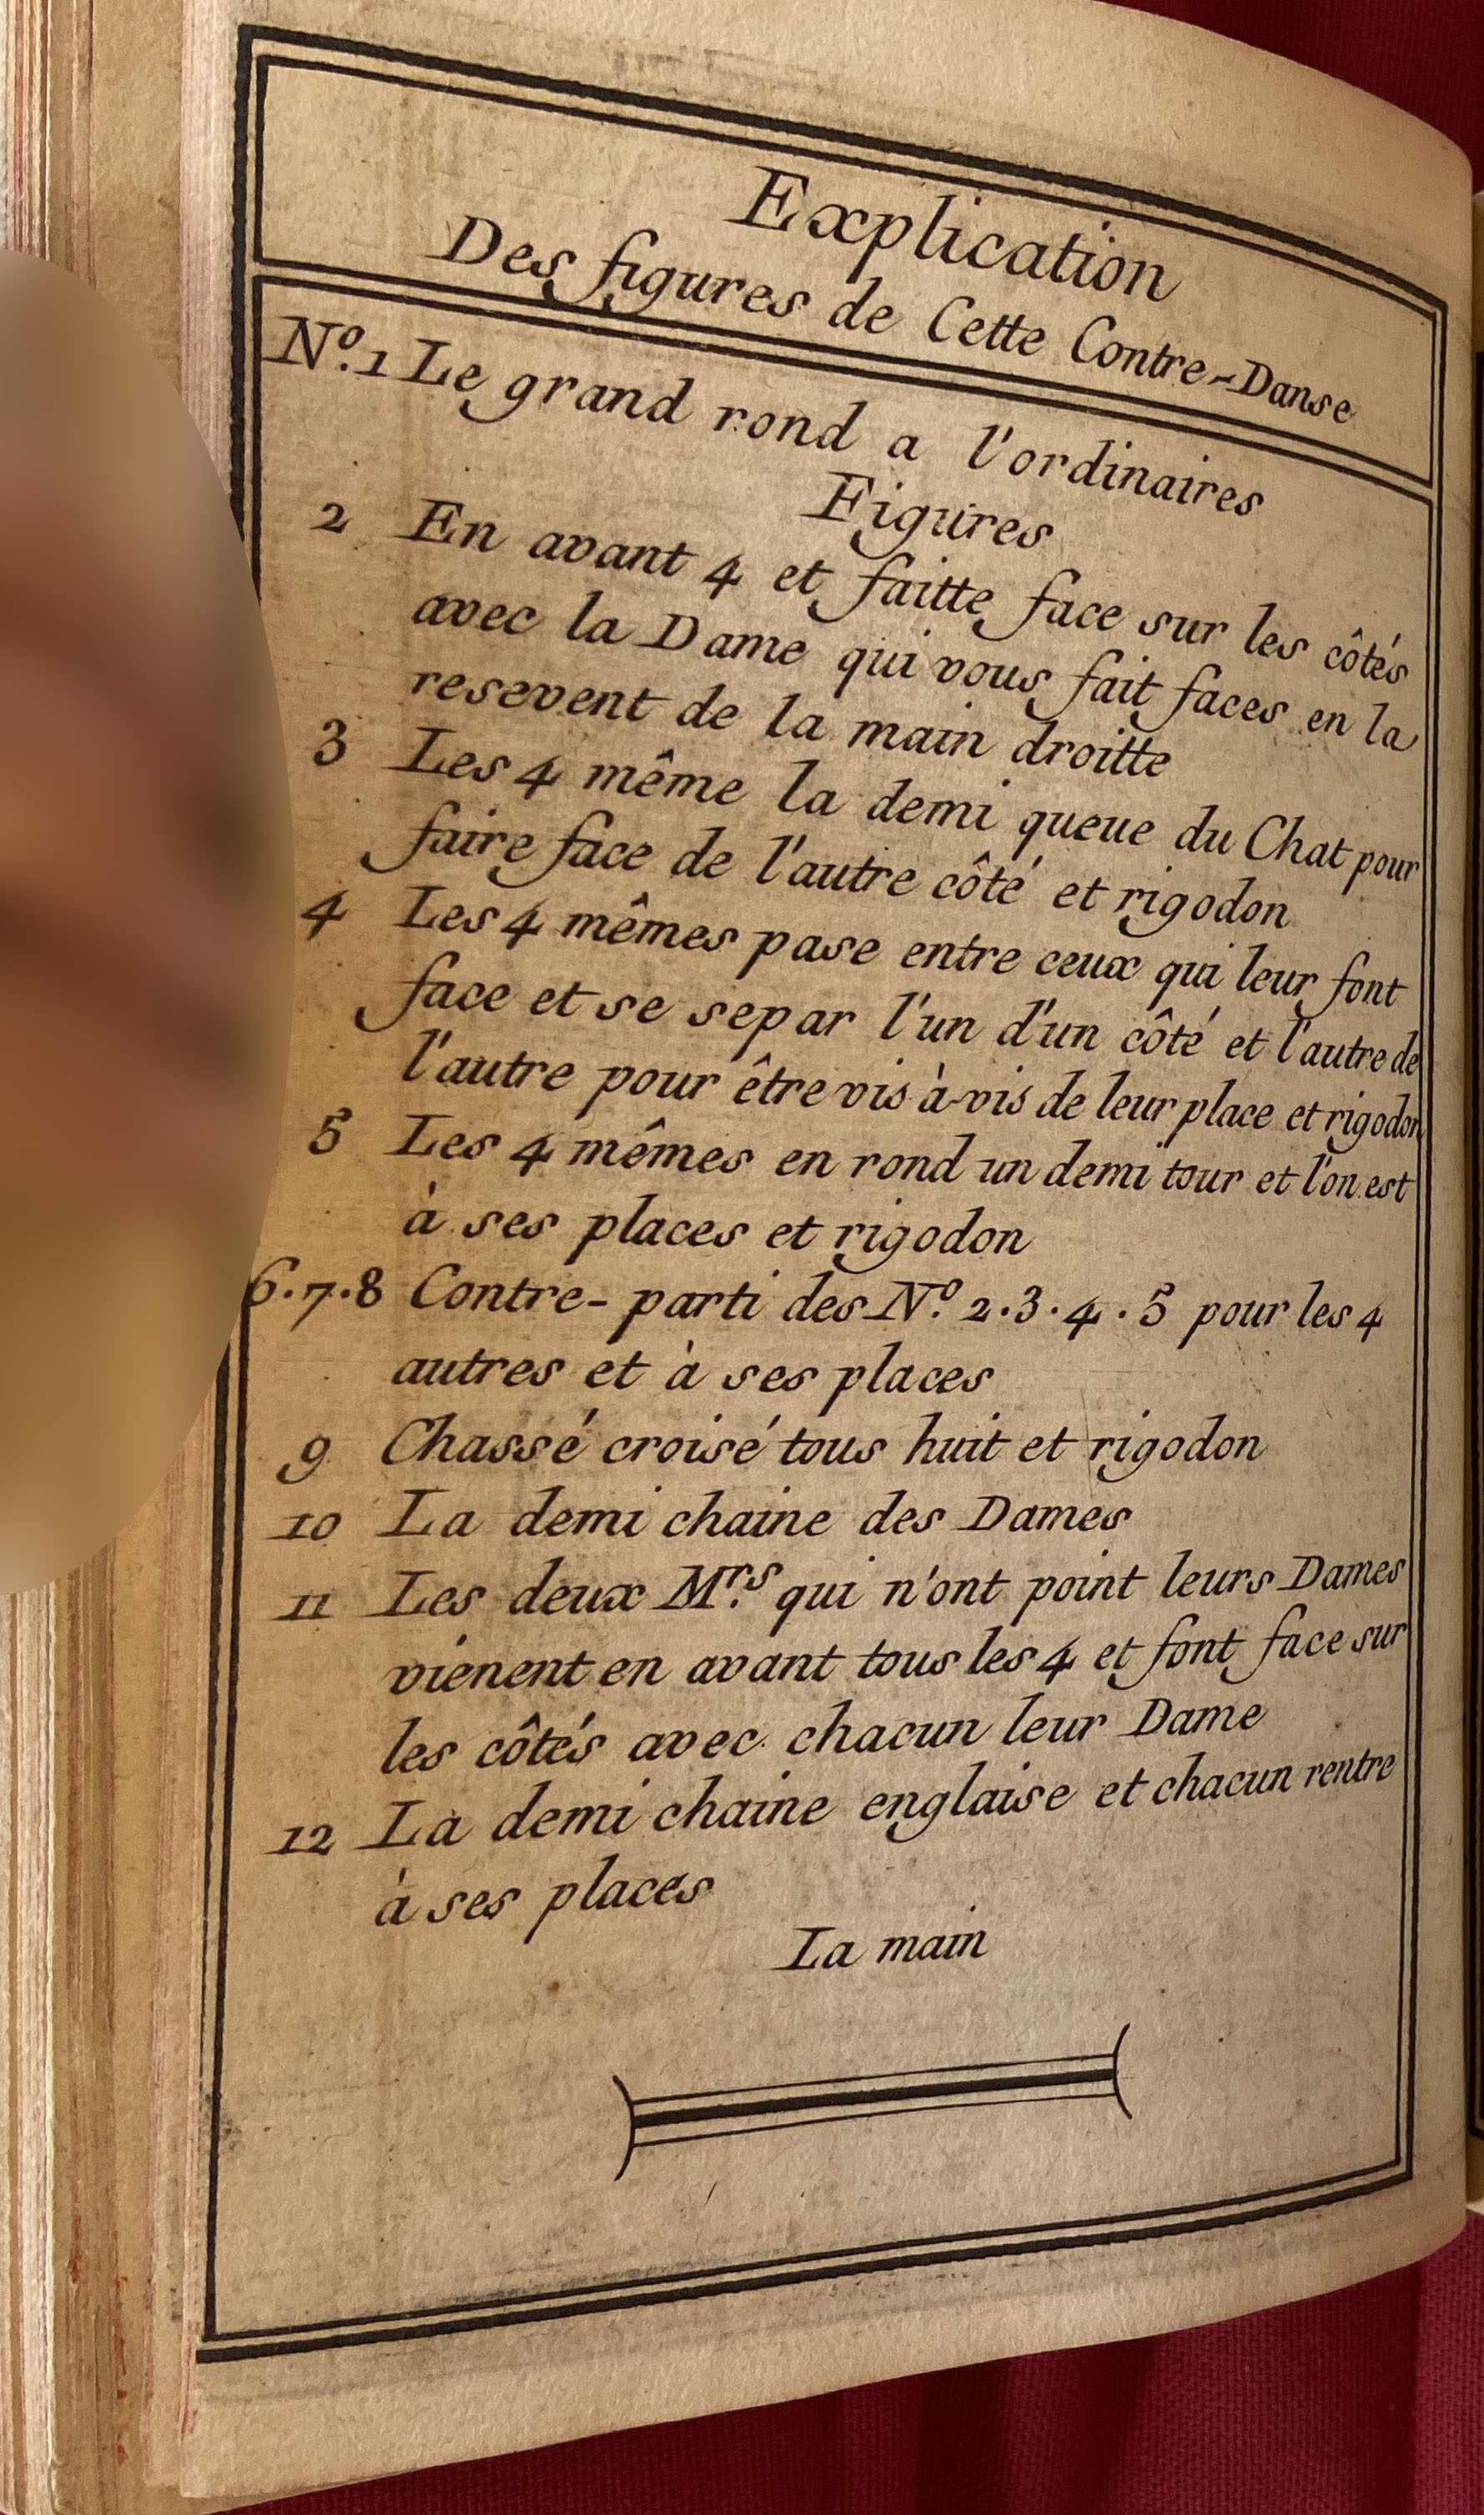 Explication
Des figures de Cette Contre-Danse
Nº. 1 Le grand rond a l'ordinaires
Figures
2 En avant 4 et faitte face sur les côtés
avec la Dame qui vous fait faces en la
resevent de la main droitte
3 Les 4 même la demi queue du Chat pour
faire face de l'autre côté et rigodon
4 Les 4 mêmes pase entre ceux qui leur font
face et se separ l'un d'un côté et l'autre de
l'autre pour être vis à-vis de leur place et rigodon
5 Les 4 mêmes en rond un demi tour et l'on est
à ses places et rigodon
6.7.8 Contre-parti des Nº. 2.3.4.5 pour les 4
autres et à ses places
9 Chassé croisé tous huit et rigodon
10 La demi chaine des Dames
11 Les deux Mrs. qui n'ont point leurs Dames
vienent en avant tous les 4 et font face sur
les côtés avec chacun leur Dame
12 La demi chaine englaise et chacun rentre
à ses places
La main